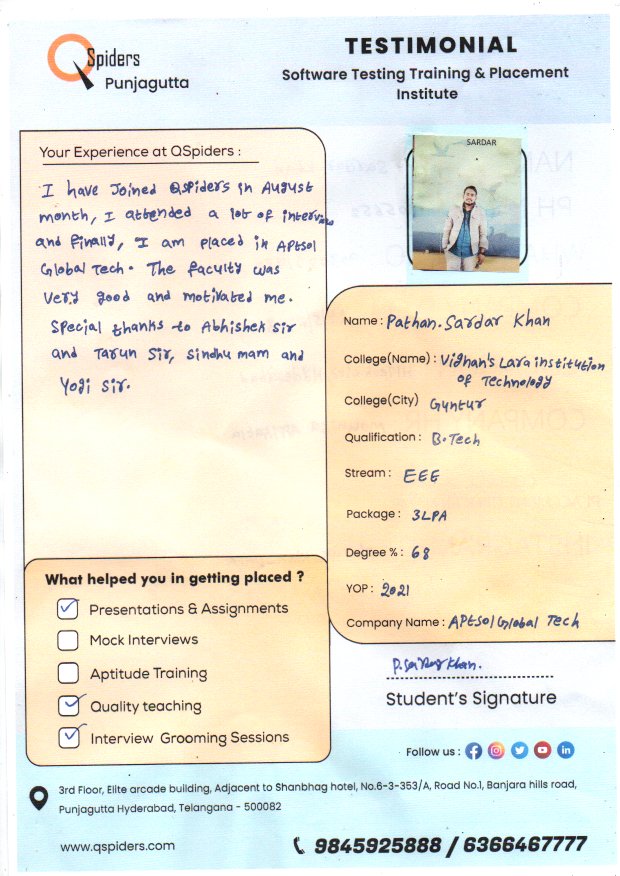 QSpiders
Punjagutta
TESTIMONIAL
Software Testing Training & Placement
Institute
Your Experience at QSpiders :
I have Joined QSpiders in August
month, I attended a lot of interview
and finally, I am placed in APtsol
Global Tech. The faculty was
very good and motivated me.
Special thanks to Abhishek sir
and Tarun Sir, Sindhu mam and
Yogi Sir.
SARDAR
Name : Pathan. Sardar Khan
College(Name) : Vighan's Lara institution
of Technology
College(City) Guntur
Qualification : B.Tech
Stream : EEE
Package : 3LPA
Degree % : 68
YOP : 2021
Company Name : APtsol Global Tech
What helped you in getting placed ?
Presentations & Assignments
Mock Interviews
Aptitude Training
Quality teaching
Interview Grooming Sessions
P. Sardar Khan.
Student's Signature
Follow us :
3rd Floor, Elite arcade building, Adjacent to Shanbhag hotel, No.6-3-353/A, Road No.1, Banjara hills road,
Punjagutta Hyderabad, Telangana - 500082
www.qspiders.com
9845925888 / 6366467777